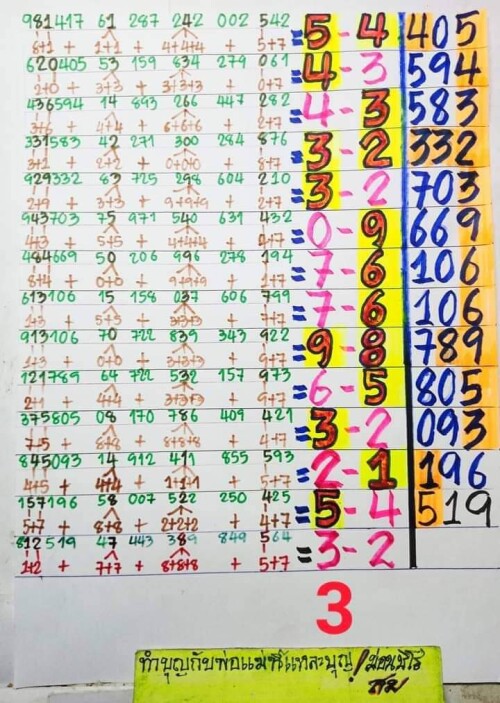 981417 61 287 242 002 542
8+1 + 1+1 + 4+4+4 + 5+7 =5-4 405
620405 53 159 834 279 061
2+0 + 3+3 + 3+3+3 + 0+7 =4-3 594
436594 14 893 266 447 282
3+6 + 4+4 + 6+6+6 + 2+7 =4-3 583
331583 42 271 300 284 876
3+1 + 2+2 + 0+0+0 + 8+7 =3-2 332
929332 83 725 298 604 210
2+9 + 3+3 + 9+9+9 + 2+7 =3-2 703
943703 75 971 540 631 432
4+3 + 5+5 + 4+4+4 + 4+7 =0-9 669
484669 50 206 996 278 194
8+4 + 0+0 + 9+9+9 + 1+7 =7-6 106
613106 15 158 037 606 799
1+3 + 5+5 + 3+3+3 + 7+7 =7-6 106
913106 70 722 839 343 922
1+3 + 0+0 + 3+3+3 + 9+7 =9-8 789
121789 64 722 532 157 973
2+1 + 4+4 + 3+3+3 + 9+7 =6-5 805
375805 08 170 786 409 421
7+5 + 8+8 + 8+8+8 + 4+7 =3-2 093
845093 14 912 411 855 593
4+5 + 4+4 + 1+1+1 + 5+7 =2-1 196
157196 58 007 522 250 425
5+7 + 8+8 + 2+2+2 + 4+7 =5-4 519
812519 47 443 389 849 564
1+2 + 7+7 + 8+8+8 + 5+7 =3-2
3
ทำบุญกับพ่อแม่ซิแหละบุญ!